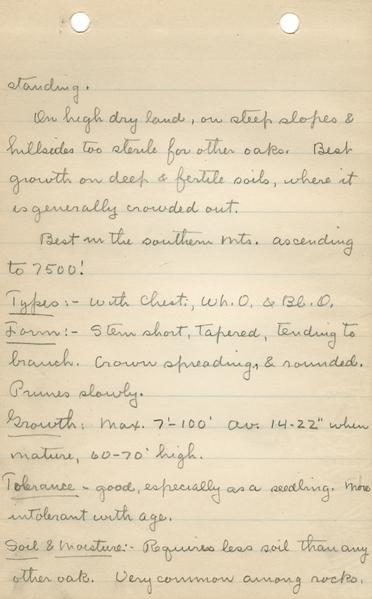 standing.
On high dry land, on steep slopes &
hillsides too sterile for other oaks. Best
growth on deep & fertile soils, where it
is generally crowded out.
Best in the southern Mts. ascending
to 7500!
Types:- With Chest., Wh. O. & Bl. O.
Form:- Stem short, Tapered, tending to
branch. Crown spreading, & rounded.
Prunes slowly.
Growth: Max. 7'-100' av. 14-22" when
mature, 60-70' high.
Tolerance - good, especially as a seedling. More
intolerant with age.
Soil & Moisture:- Requires less soil than any
other oak. Very common among rocks.